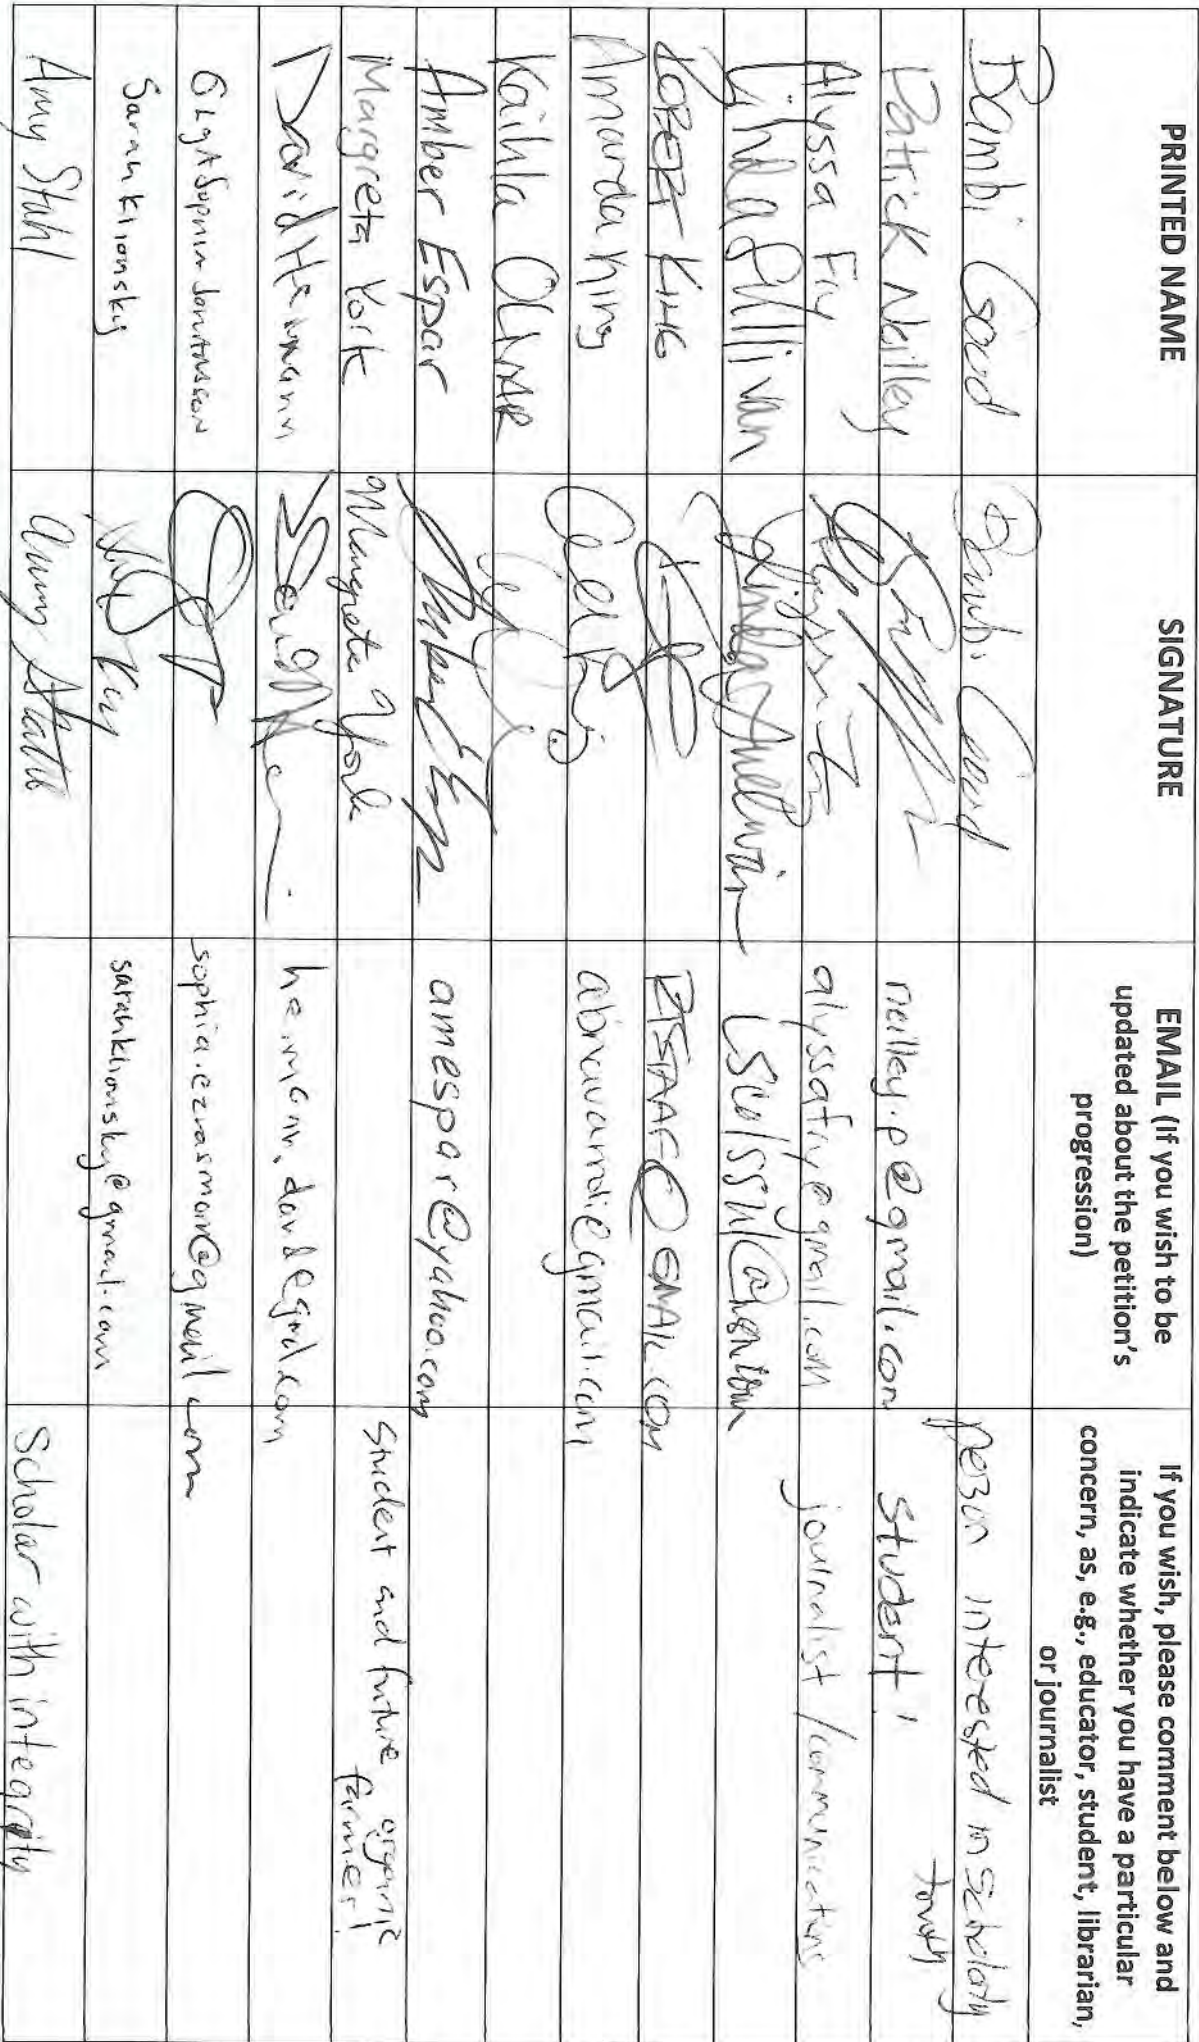 PRINTED NAME
SIGNATURE
EMAIL (If you wish to be
updated about the petition's
progression)
If you wish, please comment below and
indicate whether you have a particular
concern, as, e.g., educator, student, librarian,
or journalist
Bambi Good
Bambi Good
person interested in scholarly
truth
Patrick Neilley
neilley.p@gmail.com
Student
Alyssa Fry
Alyssa Fry
alyssafry@gmail.com
journalist / communications
Linda Sullivan
Linda Sullivan
ROBERT KING
@GMAIL.COM
Amanda King
Kaihla
Amber Espar
Amber
amespar@yahoo.com
Margreta York
Margreta York
Student and future organic
farmer!
David Heimann
heimann.david@gmail.com
sophia.ezrasman@gmail.com
Sarah Klionsky
sarahklionsky@gmail.com
Amy Stahl
Amy Stahl
Scholar with integrity